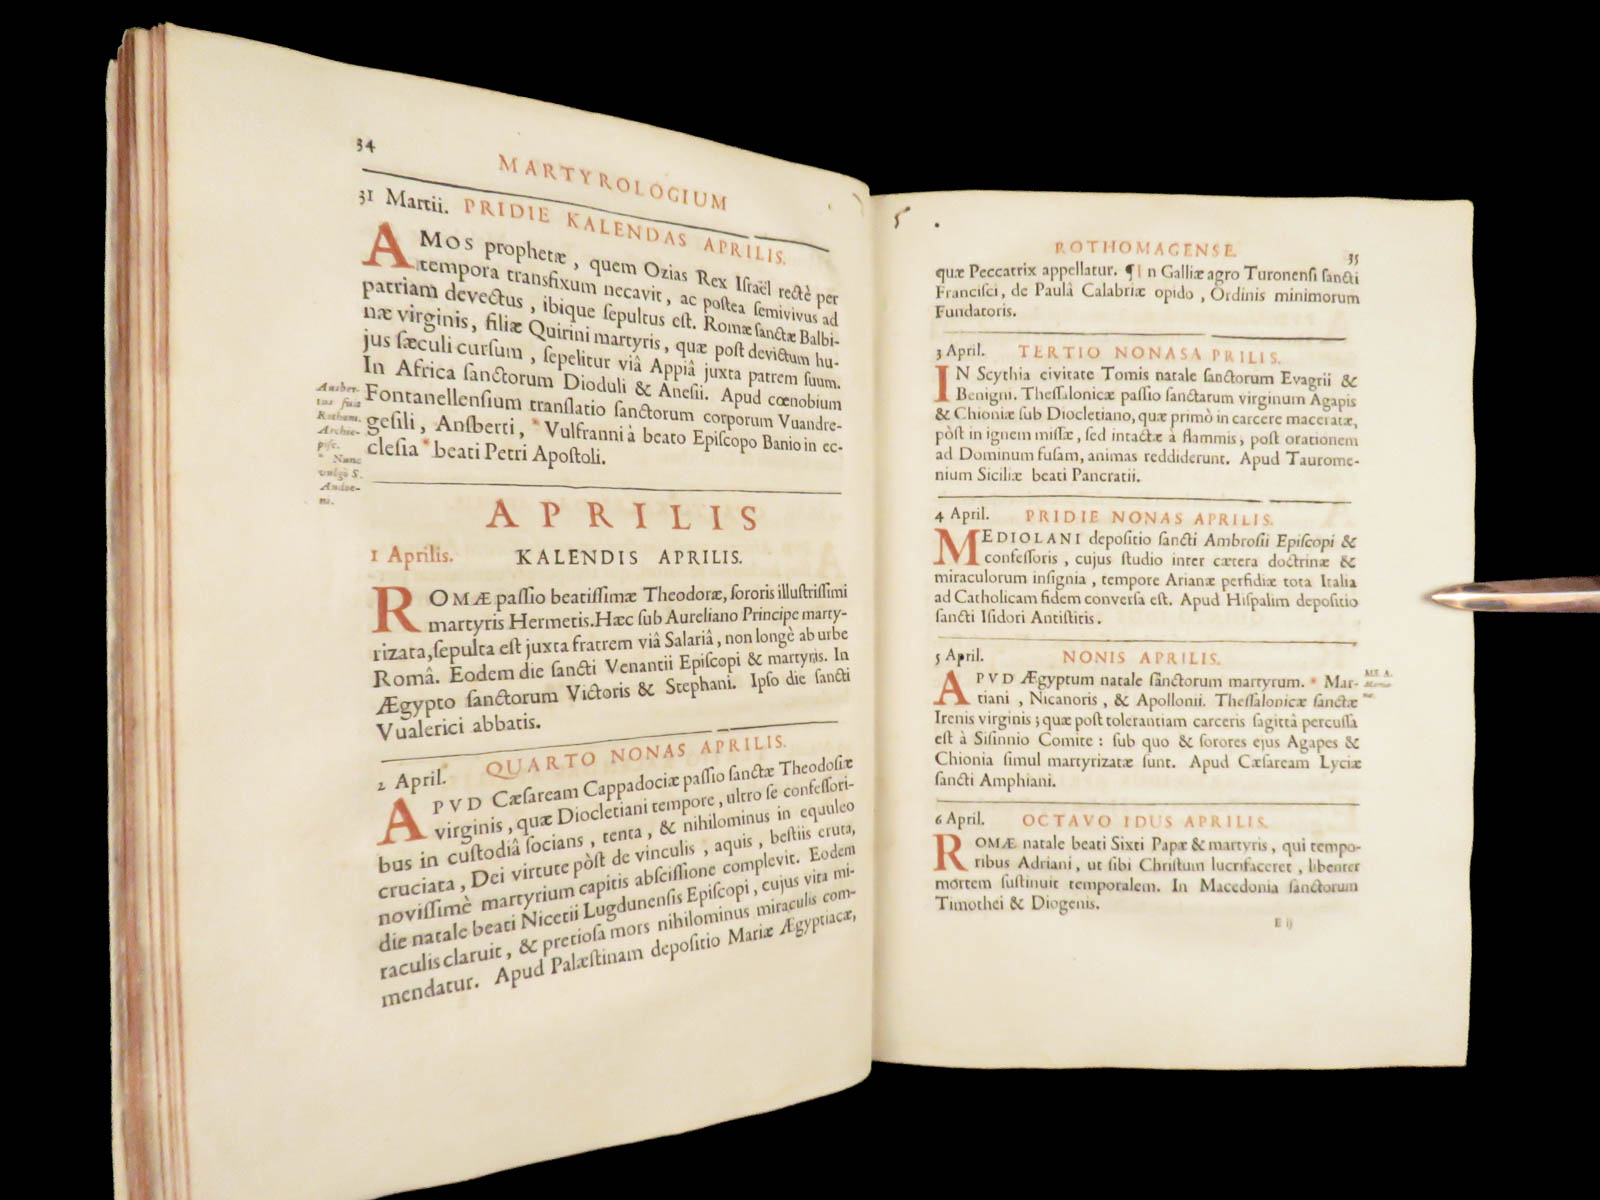 34
MARTYROLOGIUM
31 Martii. PRIDIE KALENDAS APRILIS.
AMOS prophetæ, quem Ozias Rex Iſraël rectè per
tempora transfixum necavit, ac poſtea ſemivivus ad
patriam devectus, ibique ſepultus eſt. Romæ ſanctæ Balbi-
næ virginis, filiæ Quirini martyris, quæ poſt devictum hu-
jus ſæculi curſum, ſepelitur viâ Appiâ juxta patrem ſuum.
In Africa ſanctorum Dioduli & Aneſii. Apud cœnobium
Fontanellenſium tranſlatio ſanctorum corporum Vuandre-
geſili, Anſberti, * Vulfranni à beato Epiſcopo Banio in ec-
cleſia * beati Petri Apoſtoli.
Ansber-
tus fuit
Rothom.
Archie-
piſc.
* Nunc
vulgò S.
Andoe-
ni.
APRILIS
1 Aprilis. KALENDIS APRILIS.
ROMÆ paſſio beatiſſimæ Theodoræ, ſororis illuſtriſſimi
martyris Hermetis. Hæc ſub Aureliano Principe marty-
rizata, ſepulta eſt juxta fratrem viâ Salariâ, non longè ab urbe
Româ. Eodem die ſancti Venantii Epiſcopi & martyris. In
Ægypto ſanctorum Victoris & Stephani. Ipſo die ſancti
Vualerici abbatis.
2 April. QUARTO NONAS APRILIS.
APVD Cæſaream Cappadociæ paſſio ſanctæ Theodoſiæ
virginis, quæ Diocletiani tempore, ultro ſe confeſſori-
bus in cuſtodiâ ſocians, tenta, & nihilominus in equuleo
cruciata, Dei virtute pòſt de vinculis, aquis, beſtiis eruta,
noviſſimè martyrium capitis abſciſſione complevit. Eodem
die natale beati Nicetii Lugdunenſis Epiſcopi, cujus vita mi-
raculis claruit, & pretioſa mors nihilominus miraculis com-
mendatur. Apud Palæſtinam depoſitio Mariæ Ægyptiacæ,
5
ROTHOMAGENSE.
35
quæ Peccatrix appellatur. ¶ In Galliæ agro Turonenſi ſancti
Franciſci, de Paulâ Calabriæ opido, Ordinis minimorum
Fundatoris.
3 April. TERTIO NONASA PRILIS.
IN Scythia civitate Tomis natale ſanctorum Evagrii &
Benigni. Theſſalonicæ paſſio ſanctarum virginum Agapis
& Chioniæ ſub Diocletiano, quæ primò in carcere maceratæ,
pòſt in ignem miſſæ, ſed intactæ à flammis, poſt orationem
ad Dominum fuſam, animas reddiderunt. Apud Taurome-
nium Siciliæ beati Pancratii.
4 April. PRIDIE NONAS APRILIS.
MEDIOLANI depoſitio ſancti Ambroſii Epiſcopi &
confeſſoris, cujus ſtudio inter cætera doctrinæ &
miraculorum inſignia, tempore Arianæ perfidiæ tota Italia
ad Catholicam fidem converſa eſt. Apud Hiſpalim depoſitio
ſancti Iſidori Antiſtitis.
5 April. NONIS APRILIS.
APVD Ægyptum natale ſanctorum martyrum. * Mar-
tiani, Nicanoris, & Apollonii. Theſſalonicæ ſanctæ
Irenis virginis; quæ poſt tolerantiam carceris ſagittâ percuſſa
eſt à Siſinnio Comite: ſub quo & ſorores ejus Agapes &
Chionia ſimul martyrizatæ ſunt. Apud Cæſaream Lyciæ
ſancti Amphiani.
MS. A.
6 April. OCTAVO IDUS APRILIS.
ROMÆ natale beati Sixti Papæ & martyris, qui tempo-
ribus Adriani, ut ſibi Chriſtum lucrifaceret, libenter
mortem ſuſtinuit temporalem. In Macedonia ſanctorum
Timothei & Diogenis.
E ij